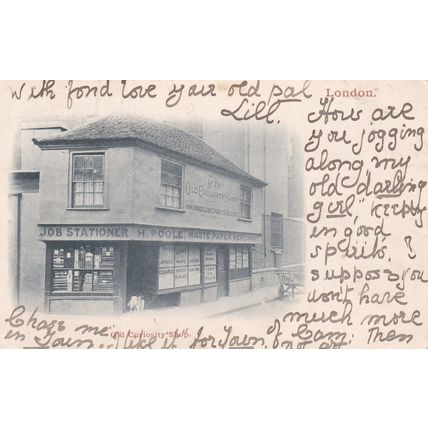 With fond love your old pal
Lill.
London.
How are
you jogging
along my
old darling
girl, keeping
in good
spirits, I
suppose you
won't have
much more
The
OLD CURIOSITY SHOP
IMMORTALIZED BY CHARLES DICKENS
JOB STATIONER H. POOLE, WASTE PAPER MERCHANT
Chase me
Old Curiosity Shop.
in Town, like it for Town, of Cam: Then